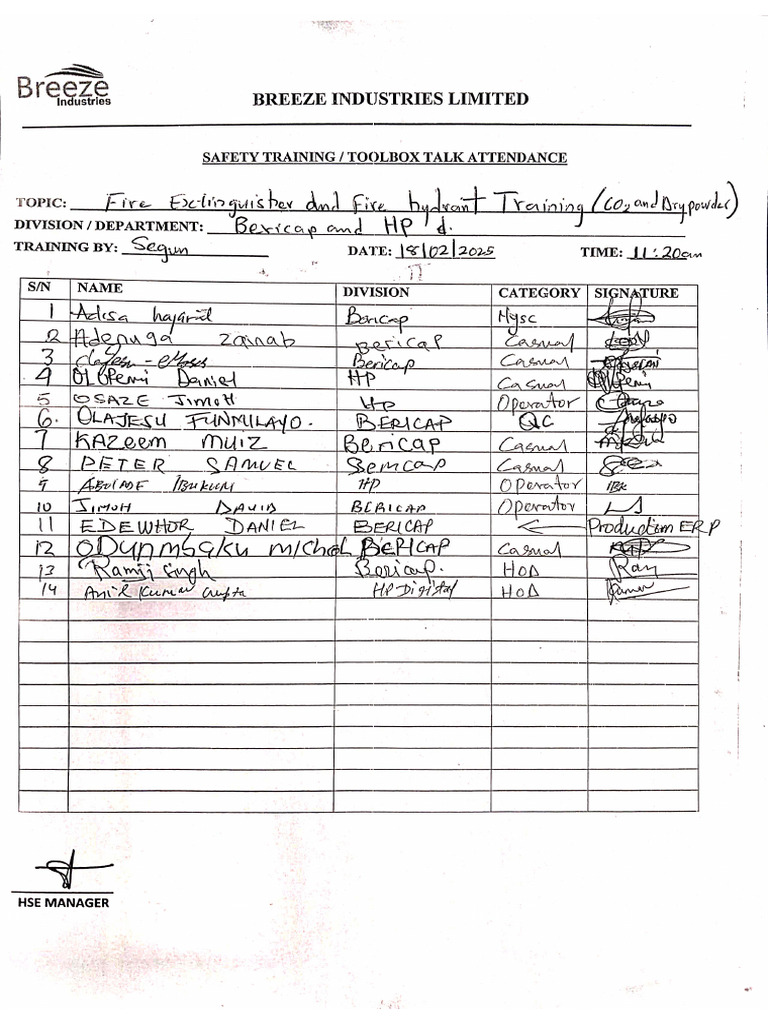 Breeze
Industries
BREEZE INDUSTRIES LIMITED
SAFETY TRAINING / TOOLBOX TALK ATTENDANCE
TOPIC: Fire Extinguisher and Fire hydrant Training (CO2 and Dry powder)
DIVISION / DEPARTMENT: Bericap and HP d.
TRAINING BY: Segun DATE: 18/02/2025 TIME: 11:20am
S/N NAME DIVISION CATEGORY SIGNATURE
1 Adisa Bericap Nysc
2 Adenuga Zainab Bericap Casual
3 Bericap Casual
4 Olopemi Daniel HP Casual
5 OSAZE JIMOH HP Operator
6. OLAJESU FUNMILAYO. BERICAP QC
7 KAZeem MUIZ Bericap Casual
8 PETER SAMUEL Bericap Casual
9 IBUKUN HP Operator IBK
10 JIMOH DAVID BERICAP Operator
11 EDEWHOR DANIEL BERICAP ← Production ERP
12 BERICAP Casual
13 Ramji Singh Bericap. HOD Ram
14 Anil Kumar Gupta HP Digital HOD
HSE MANAGER